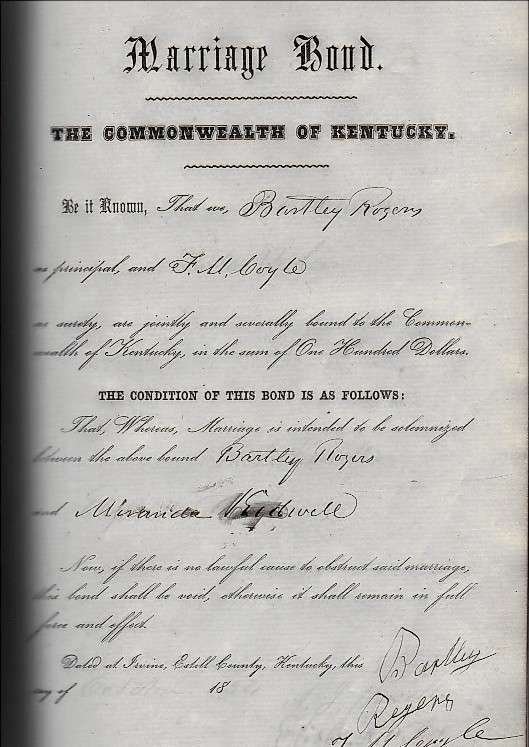 Marriage Bond.
THE COMMONWEALTH OF KENTUCKY.
Be it Known, That we, Bartley Rogers
as principal, and F. M. Coyle
as surety, are jointly and severally bound to the Common-
wealth of Kentucky, in the sum of One Hundred Dollars.
THE CONDITION OF THIS BOND IS AS FOLLOWS:
That, Whereas, Marriage is intended to be solemnized
between the above bound Bartley Rogers
and Miranda Kidwell
Now, if there is no lawful cause to obstruct said marriage,
this bond shall be void, otherwise it shall remain in full
force and effect.
Dated at Irvine, Estill County, Kentucky, this
day of 18
Bartley
Rogers